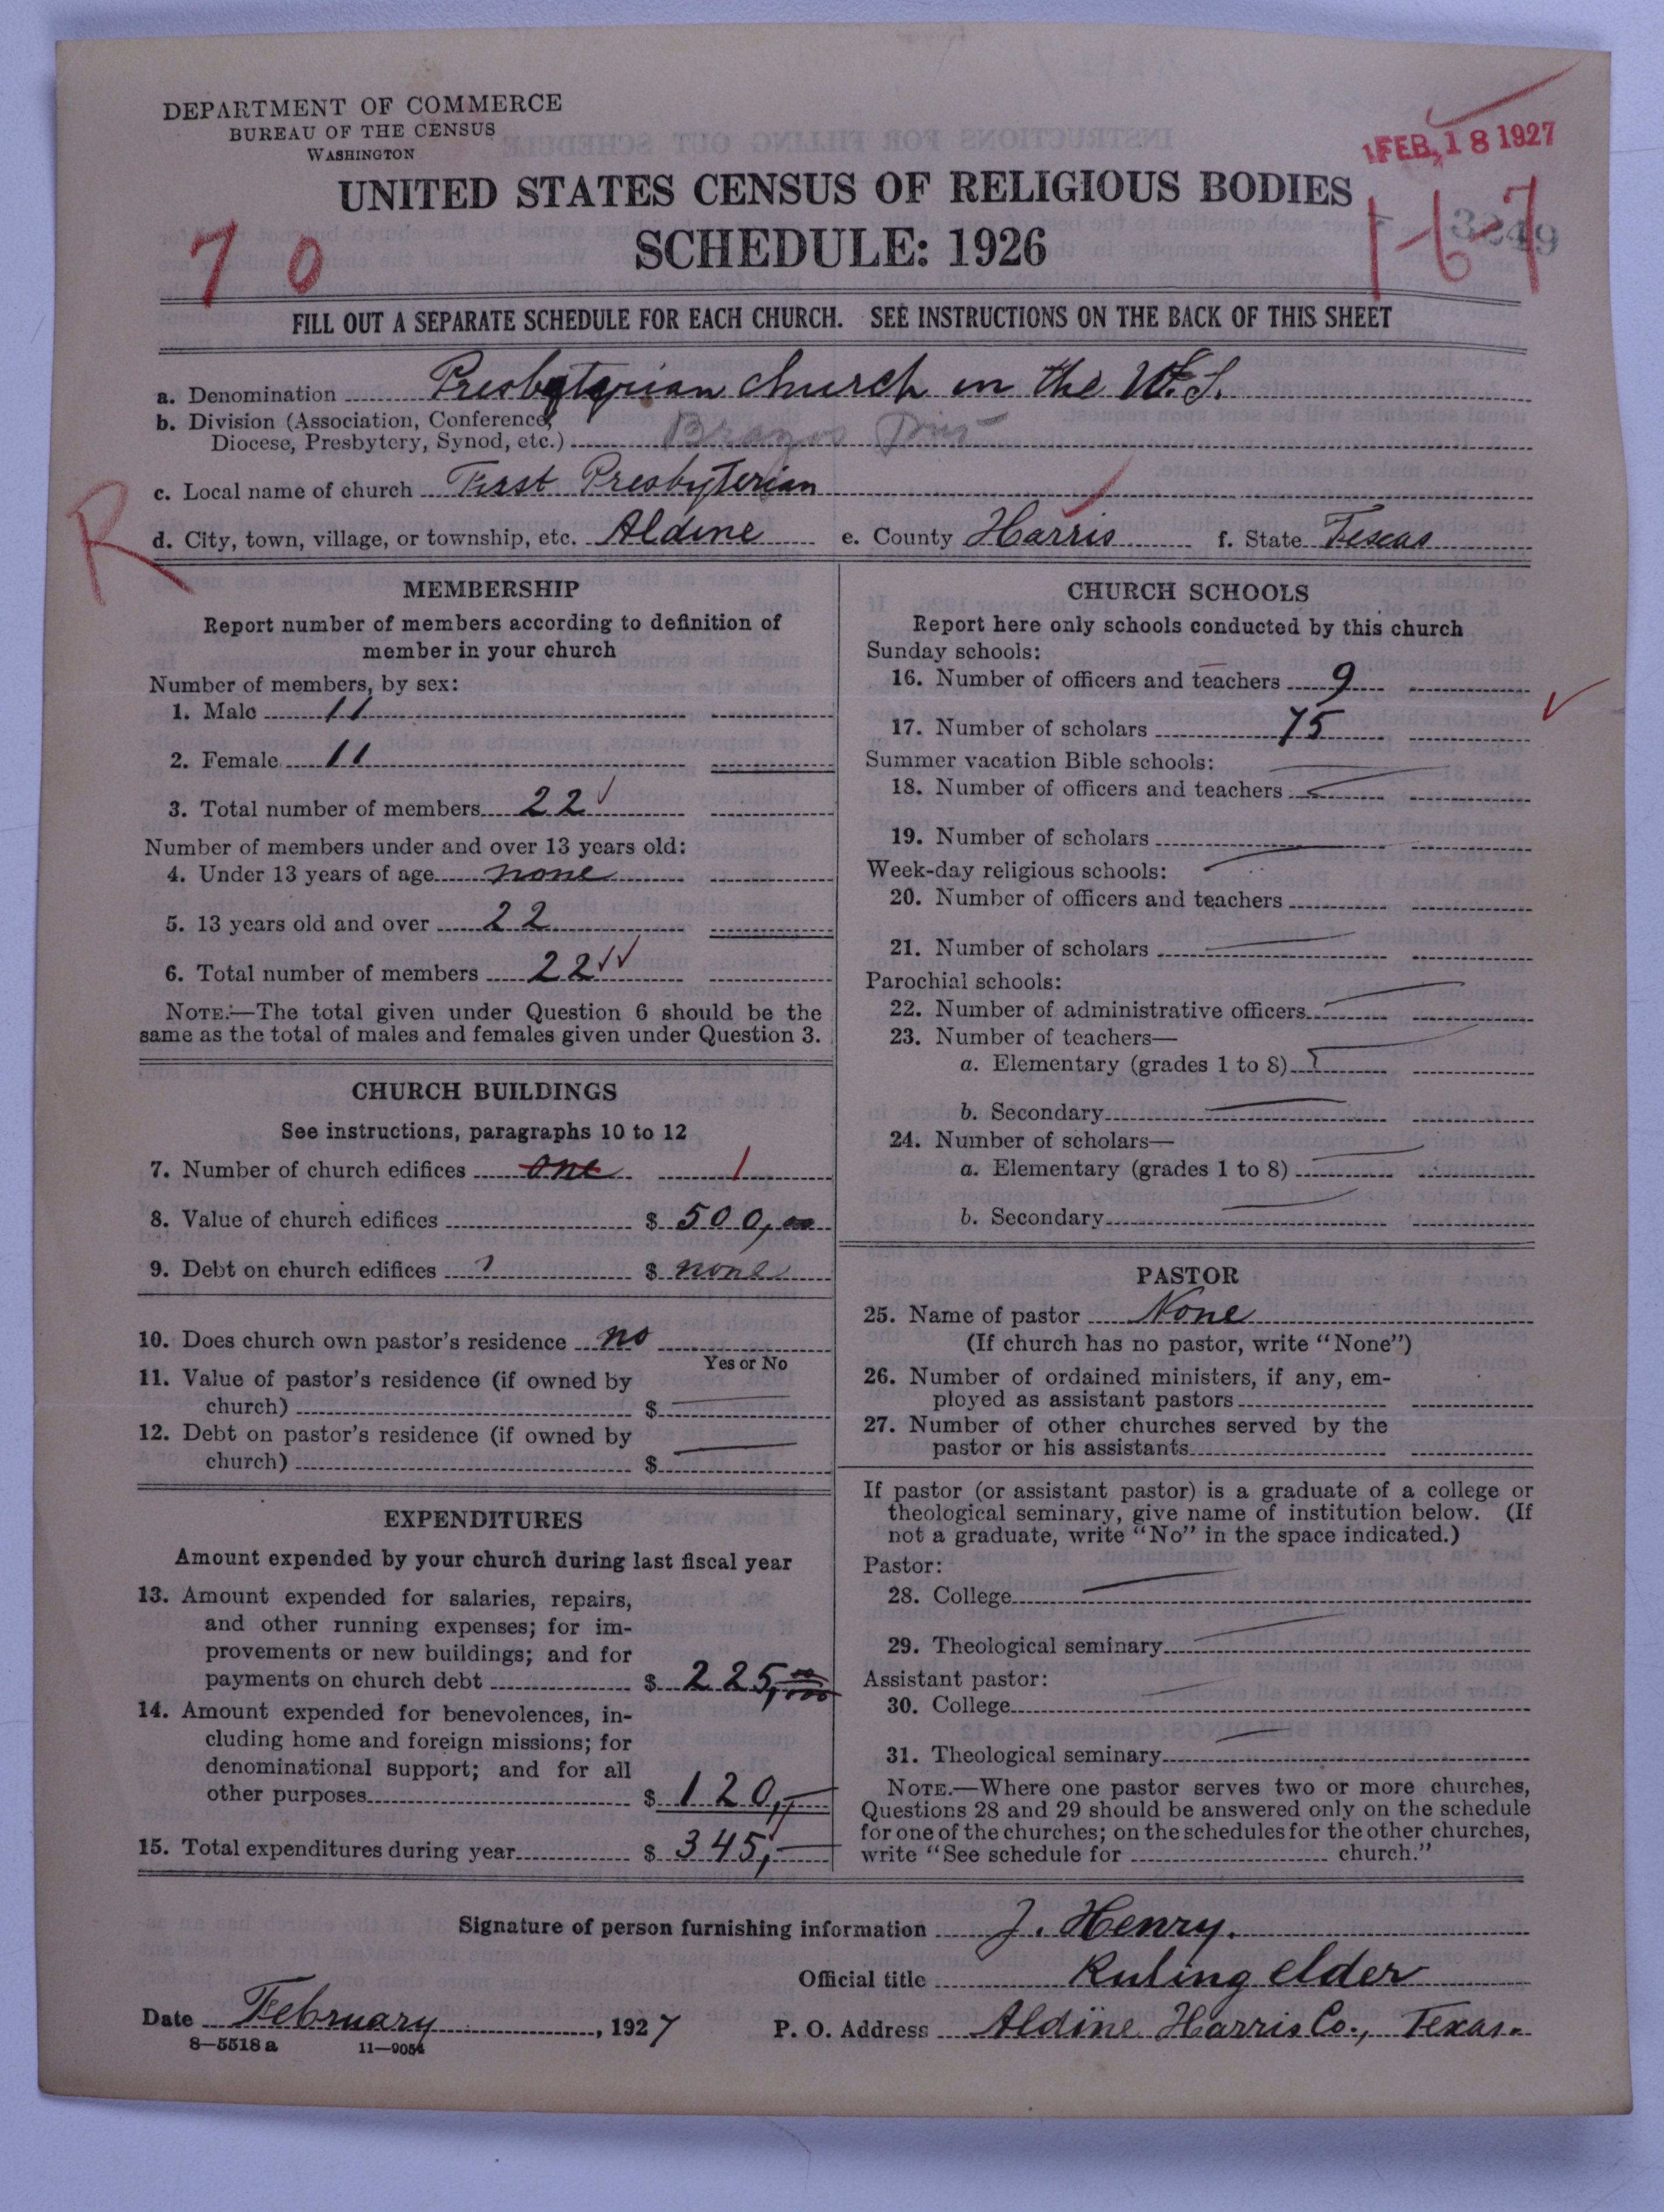 DEPARTMENT OF COMMERCE
BUREAU OF THE CENSUS
WASHINGTON
FEB 18 1927
UNITED STATES CENSUS OF RELIGIOUS BODIES
SCHEDULE: 1926
70
1-6-7
3249
FILL OUT A SEPARATE SCHEDULE FOR EACH CHURCH. SEE INSTRUCTIONS ON THE BACK OF THIS SHEET
a. Denomination Presbyterian church in the U.S.
b. Division (Association, Conference,
Diocese, Presbytery, Synod, etc.) Brazos
c. Local name of church First Presbyterian
R
d. City, town, village, or township, etc. Aldine e. County Harris f. State Texas
MEMBERSHIP
Report number of members according to definition of
member in your church
Number of members, by sex:
1. Male 11
2. Female 11
3. Total number of members 22
Number of members under and over 13 years old:
4. Under 13 years of age none
5. 13 years old and over 22
6. Total number of members 22
NOTE.—The total given under Question 6 should be the
same as the total of males and females given under Question 3.
CHURCH BUILDINGS
See instructions, paragraphs 10 to 12
7. Number of church edifices one 1
8. Value of church edifices $ 500,00
9. Debt on church edifices $ none
10. Does church own pastor's residence no
Yes or No
11. Value of pastor's residence (if owned by
church) $
12. Debt on pastor's residence (if owned by
church) $
EXPENDITURES
Amount expended by your church during last fiscal year
13. Amount expended for salaries, repairs,
and other running expenses; for im-
provements or new buildings; and for
payments on church debt $ 225,
14. Amount expended for benevolences, in-
cluding home and foreign missions; for
denominational support; and for all
other purposes $ 120,—
15. Total expenditures during year $ 345,—
CHURCH SCHOOLS
Report here only schools conducted by this church
Sunday schools:
16. Number of officers and teachers 9
17. Number of scholars 75
Summer vacation Bible schools:
18. Number of officers and teachers
19. Number of scholars
Week-day religious schools:
20. Number of officers and teachers
21. Number of scholars
Parochial schools:
22. Number of administrative officers
23. Number of teachers—
a. Elementary (grades 1 to 8)
b. Secondary
24. Number of scholars—
a. Elementary (grades 1 to 8)
b. Secondary
PASTOR
25. Name of pastor None
(If church has no pastor, write "None")
26. Number of ordained ministers, if any, em-
ployed as assistant pastors
27. Number of other churches served by the
pastor or his assistants
If pastor (or assistant pastor) is a graduate of a college or
theological seminary, give name of institution below. (If
not a graduate, write "No" in the space indicated.)
Pastor:
28. College
29. Theological seminary
Assistant pastor:
30. College
31. Theological seminary
NOTE.—Where one pastor serves two or more churches,
Questions 28 and 29 should be answered only on the schedule
for one of the churches; on the schedules for the other churches,
write "See schedule for church."
Signature of person furnishing information J. Henry.
Official title Ruling elder
Date February, 1927 P. O. Address Aldine Harris Co., Texas.
8—5518a 11—9054